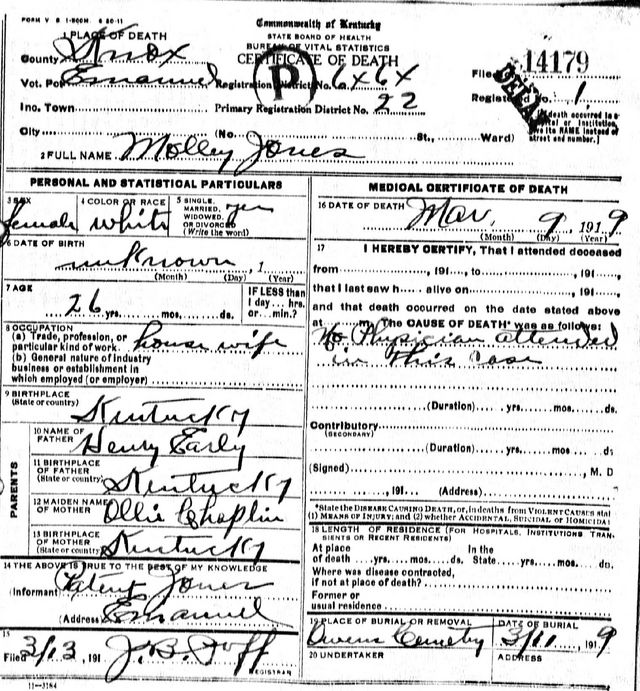 FORM V S 1-500M. 6 20-11
Commonwealth of Kentucky
STATE BOARD OF HEALTH
BUREAU OF VITAL STATISTICS
CERTIFICATE OF DEATH
1 PLACE OF DEATH
County Knox
Vot. Pct. Emanuel Registration District No. 6x6x
P
File No. 14179
DELAY
Inc. Town Primary Registration District No. 22
Registered No. 1,
City (No. St., Ward)
[If death occurred in a
Hospital or Institution,
give its NAME instead of
street and number.]
2 FULL NAME Molley Jones
PERSONAL AND STATISTICAL PARTICULARS
3 SEX
female
4 COLOR OR RACE
white
5 SINGLE,
MARRIED,
WIDOWED,
OR DIVORCED
(Write the word)
yes
6 DATE OF BIRTH
unknown, 1
(Month) (Day) (Year)
7 AGE
26 yrs. mos. ds.
IF LESS than
1 day... hrs.
or... min.?
8 OCCUPATION
(a) Trade, profession, or
particular kind of work. house wife
(b) General nature of industry
business or establishment in
which employed (or employer)
9 BIRTHPLACE
(State or country) Kentucky
PARENTS
10 NAME OF
FATHER Henry Early
11 BIRTHPLACE
OF FATHER
(State or country) Kentucky
12 MAIDEN NAME
OF MOTHER Ollie Chaplin
13 BIRTHPLACE
OF MOTHER
(State or country) Kentucky
14 THE ABOVE IS TRUE TO THE BEST OF MY KNOWLEDGE
(Informant) Jones
(Address) Emanuel
15
Filed 3/13, 191 J. B.
REGISTRAR
11-3184
MEDICAL CERTIFICATE OF DEATH
16 DATE OF DEATH Mar. 9, 1919
(Month) (Day) (Year)
17 I HEREBY CERTIFY, That I attended deceased
from , 191 , to , 191 ,
that I last saw h alive on , 191 ,
and that death occurred on the date stated above
at m. The CAUSE OF DEATH* was as follows:
No Physician attended
in this case
(Duration) yrs. mos. ds.
Contributory
(SECONDARY)
(Duration) yrs. mos. ds
(Signed) , M. D
, 191 , (Address)
*State the DISEASE CAUSING DEATH, or, in deaths from VIOLENT CAUSES stat
(1) MEANS OF INJURY; and (2) whether ACCIDENTAL, SUICIDAL or HOMICIDAL
18 LENGTH OF RESIDENCE (FOR HOSPITALS, INSTITUTIONS TRAN-
SIENTS OR RECENT RESIDENTS)
At place In the
of death yrs. mos. ds. State yrs. mos. ds.
Where was disease contracted,
if not at place of death?
Former or
usual residence
19 PLACE OF BURIAL OR REMOVAL
Owens Cemetry
DATE OF BURIAL
3/11, 1919
20 UNDERTAKER
ADDRESS